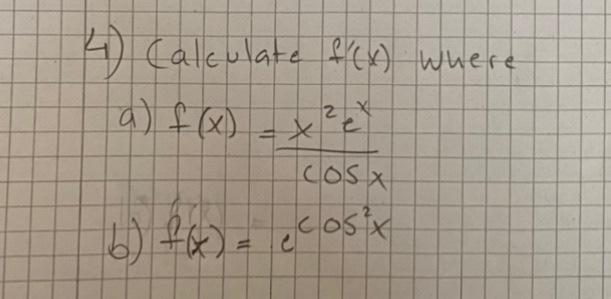 4) Calculate f'(x) where
a) f(x) = x²eˣ / cos x
b) f(x) = e^cos²x